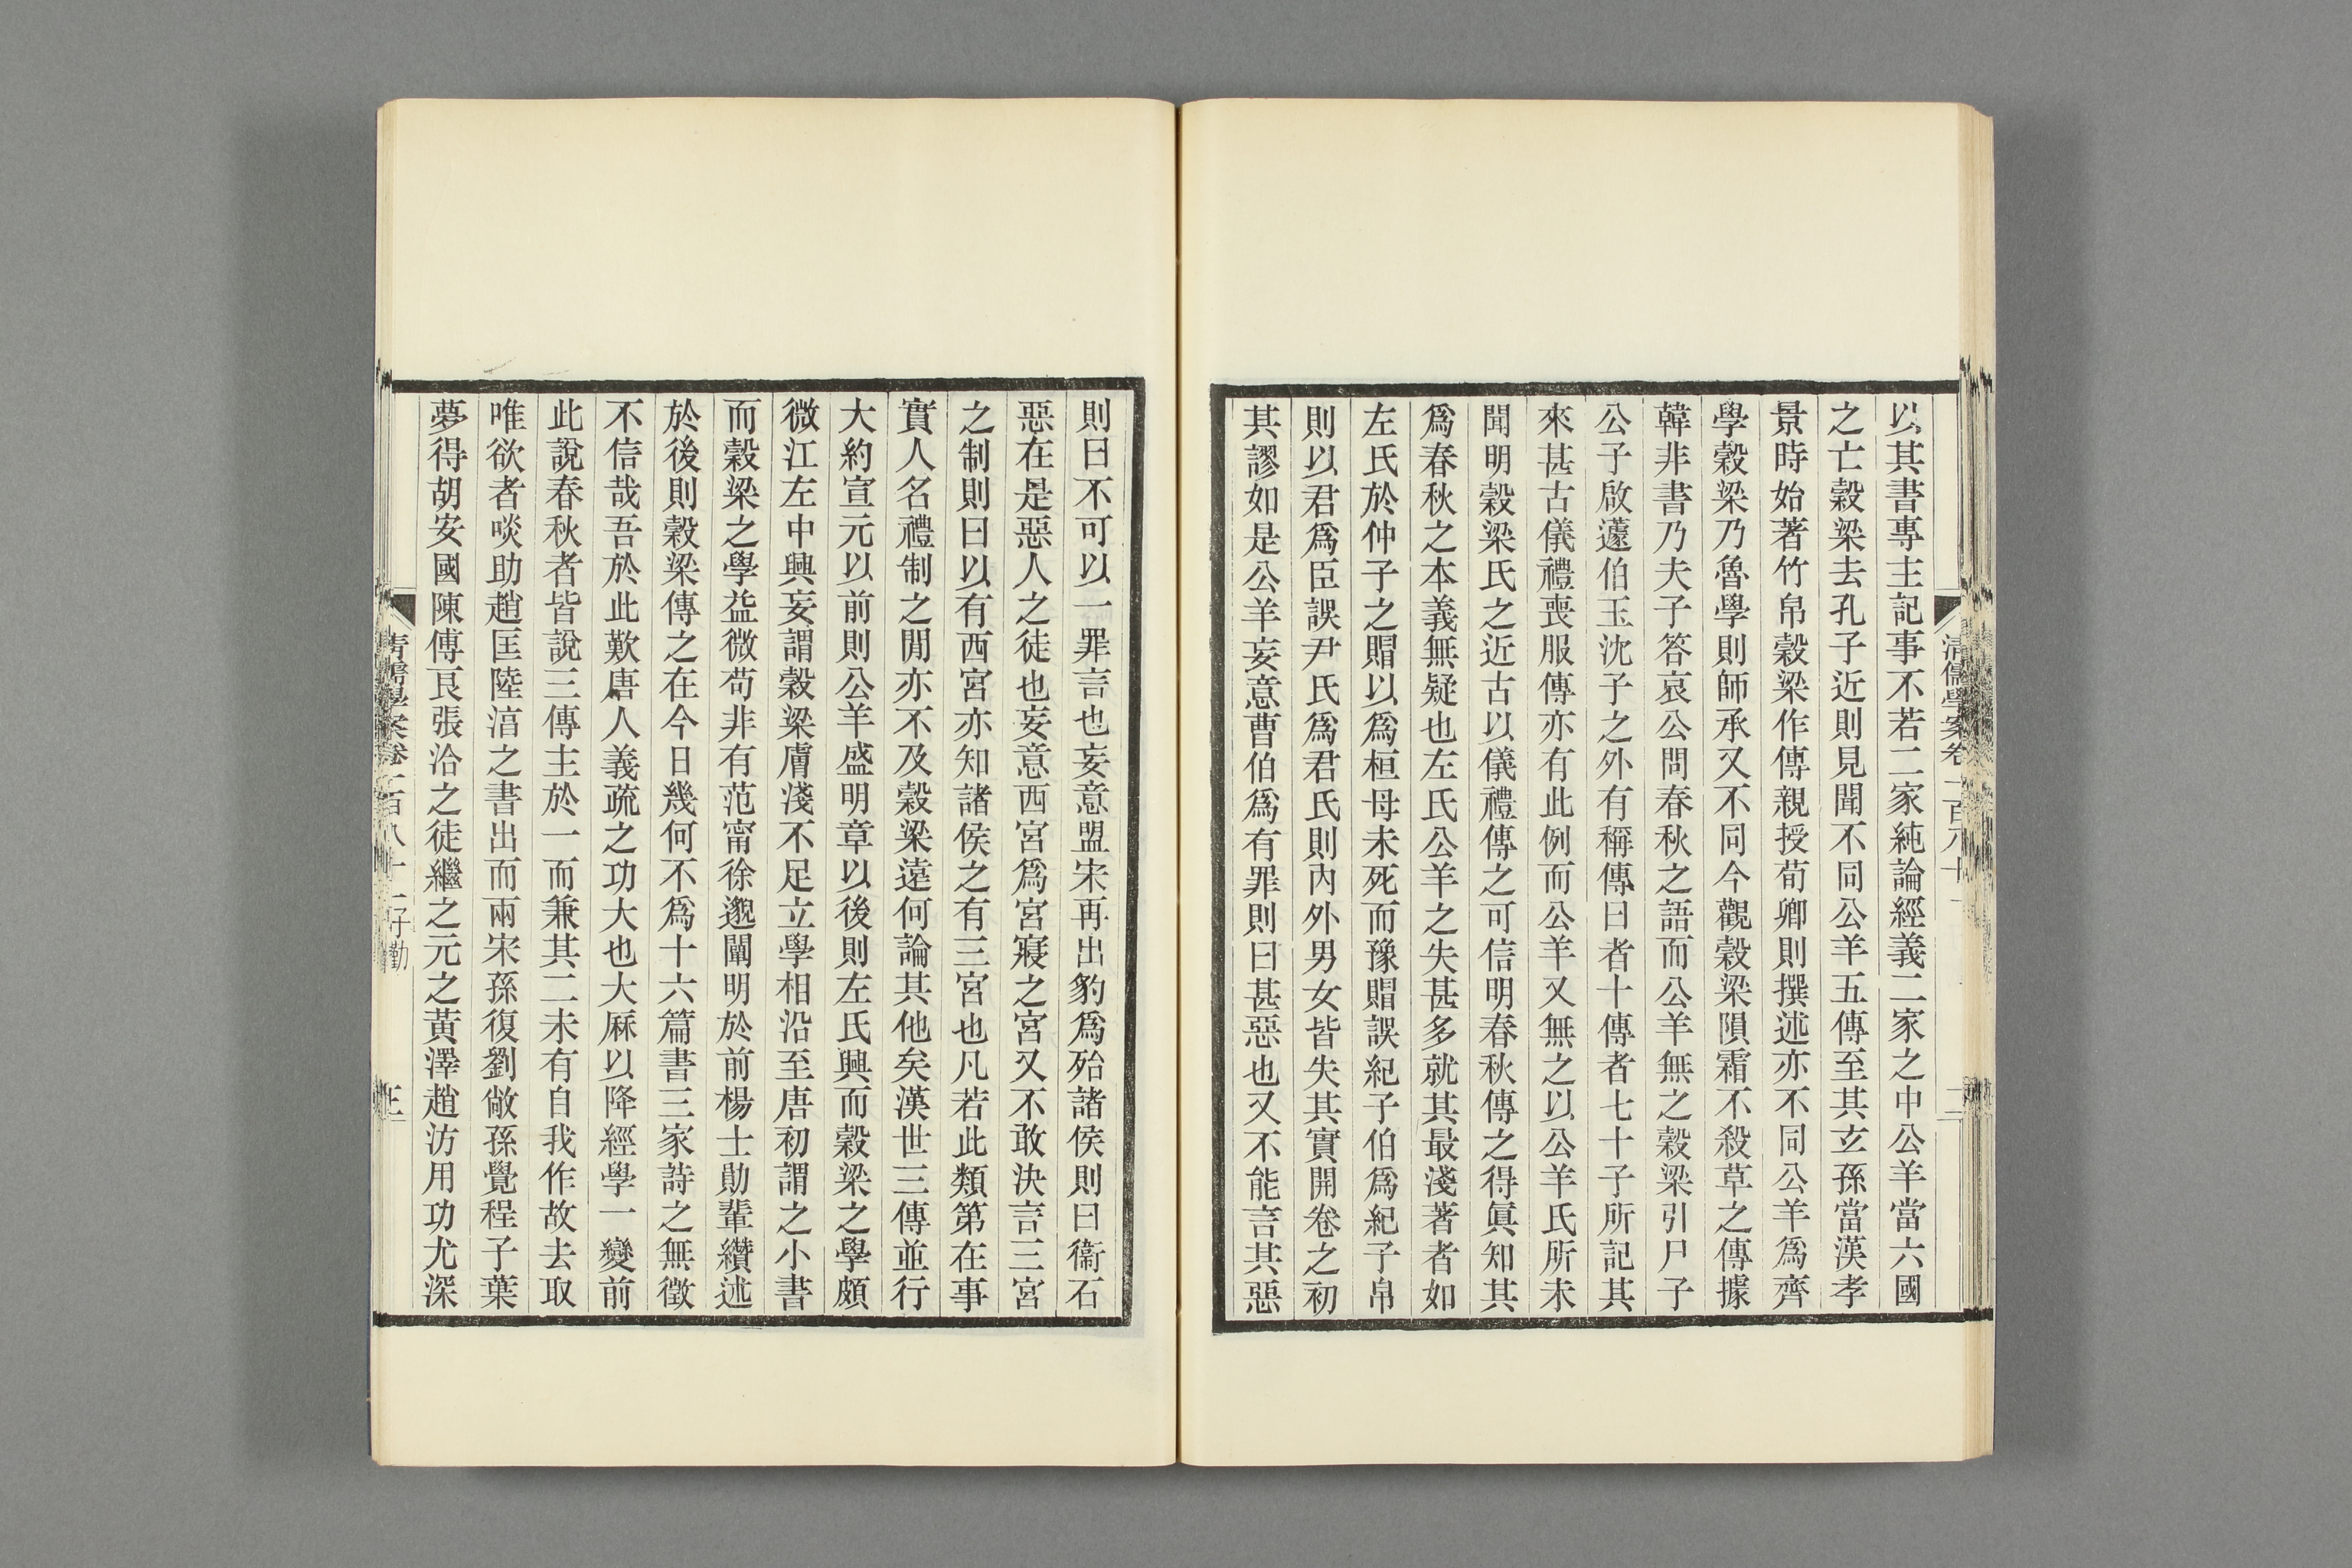 以其書專主記事不若二家純論經義二家之中公羊當六國
之亡穀梁去孔子近則見聞不同公羊五傳至其玄孫當漢孝
景時始著竹帛穀梁作傳親授荀卿則撰述亦不同公羊爲齊
學穀梁乃魯學則師承又不同今觀穀梁隕霜不殺草之傳據
韓非書乃夫子答哀公問春秋之語而公羊無之穀梁引尸子
公子啟蘧伯玉沈子之外有稱傳曰者十傳者七十子所記其
來甚古儀禮喪服傳亦有此例而公羊又無之以公羊氏所未
聞明穀梁氏之近古以儀禮傳之可信明春秋傳之得眞知其
爲春秋之本義無疑也左氏公羊之失甚多就其最淺著者如
左氏於仲子之賵以爲桓母未死而豫賵誤紀子伯爲紀子帛
則以君爲臣誤尹氏爲君氏則內外男女皆失其實開卷之初
其謬如是公羊妄意曹伯爲有罪則曰甚惡也又不能言其惡
則曰不可以一罪言也妄意盟宋再出豹爲殆諸侯則曰衞石
惡在是惡人之徒也妄意西宮爲宮寢之宮又不敢決言三宮
之制則曰以有西宮亦知諸侯之有三宮也凡若此類第在事
實人名禮制之閒亦不及穀梁遠何論其他矣漢世三傳並行
大約宣元以前則公羊盛明章以後則左氏興而穀梁之學頗
微江左中興妄謂穀梁膚淺不足立學相沿至唐初謂之小書
而穀梁之學益微苟非有范甯徐邈闡明於前楊士勛輩纘述
於後則穀梁傳之在今日幾何不爲十六篇書三家詩之無徵
不信哉吾於此歎唐人義疏之功大也大厤以降經學一變前
此說春秋者皆說三傳主於一而兼其二未有自我作故去取
唯欲者啖助趙匡陸淳之書出而兩宋孫復劉敞孫覺程子葉
夢得胡安國陳傅良張洽之徒繼之元之黃澤趙汸用功尤深